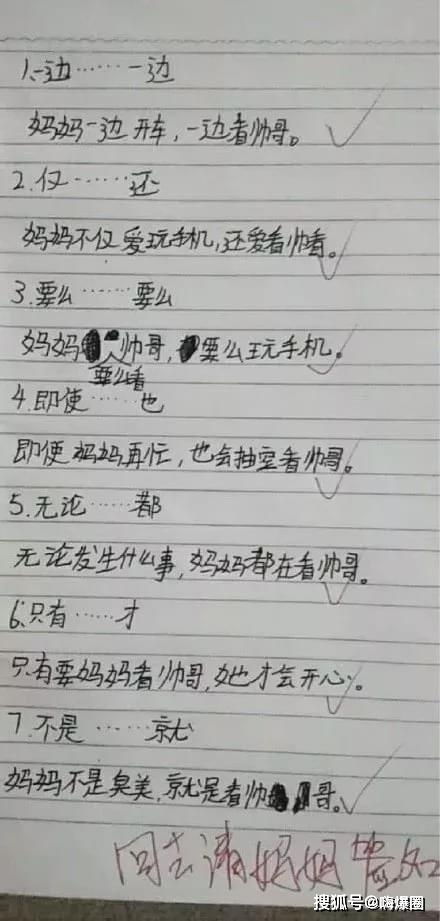 1.一边……一边
妈妈一边开车，一边看帅哥。
2.仅……还
妈妈不仅爱玩手机，还爱看帅看。
3.要么……要么
妈妈要么看帅哥，要么玩手机。
4.即使……也
即使妈妈再忙，也会抽空看帅哥。
5.无论……都
无论发生什么事，妈妈都在看帅哥。
6.只有……才
只有要妈妈看帅哥，她才会开心。
7.不是……就
妈妈不是臭美，就是看帅哥。
回去请妈妈签知
搜狐号@嗨爆圈